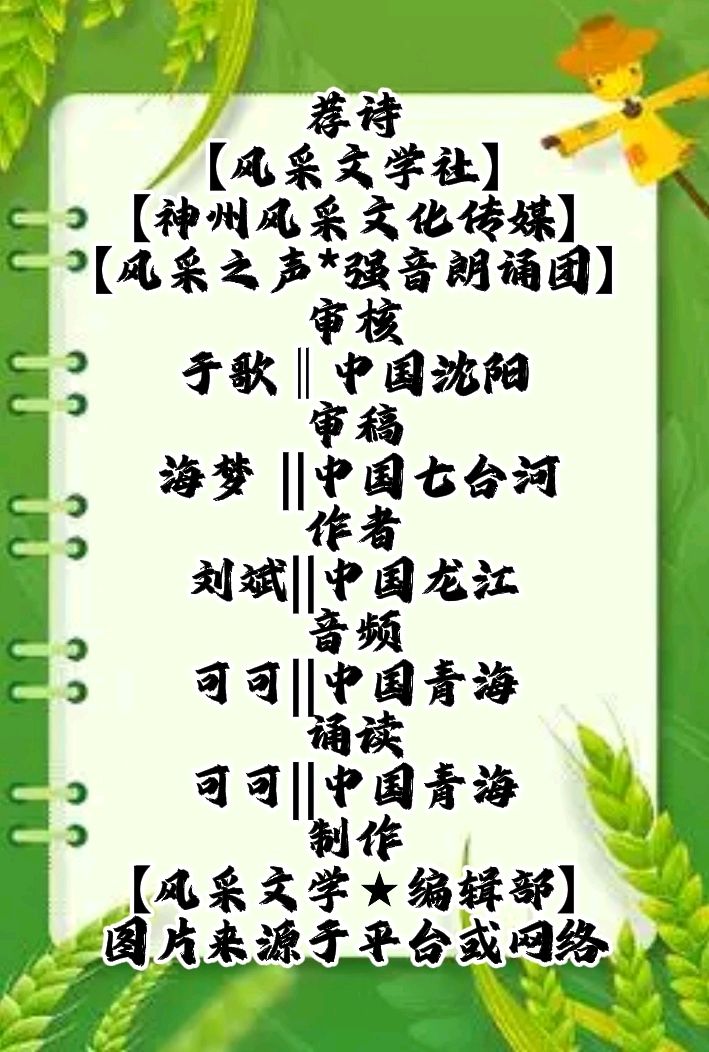 荐诗
【风采文学社】
【神州风采文化传媒】
【风采之声*强音朗诵团】
审核
于歌‖中国沈阳
审稿
海梦 ||中国七台河
作者
刘斌||中国龙江
音频
可可||中国青海
诵读
可可||中国青海
制作
【风采文学★编辑部】
图片来源于平台或网络